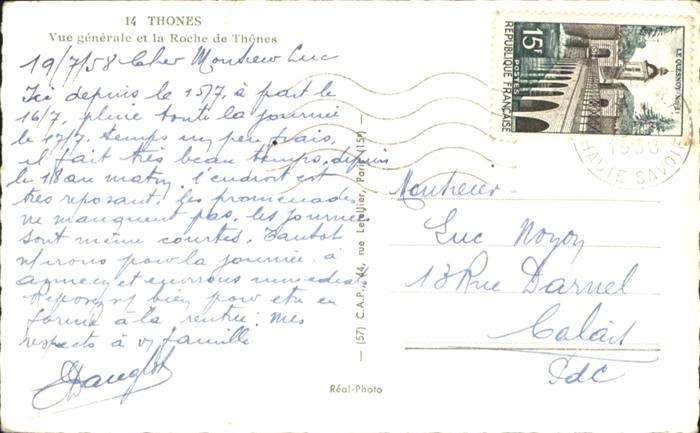 14 THONES
Vue générale et la Roche de Thônes
19/7/58 Cher Monsieur Luc
Ici depuis le 15/7, à part le
16/7, pluie toute la journée
le 17/7. temps un peu frais,
il fait très beau temps, depuis
le 18 au matin, l'endroit est
très reposant, les promenades
ne manquent pas, les journées
sont même courtes,
irons pour la journée à
Annecy et environs
bien pour être en
forme à la rentrée: mes
respects à v/ famille
(57) C.A.P., 44, rue Letellier, Paris (15e)
Réal-Photo
15F
POSTES
RÉPUBLIQUE FRANÇAISE
LE QUESNOY (Nord)
1958
HAUTE SAVOIE
Monsieur
Luc Noyon
13 Rue Darnel
Calais
PdC